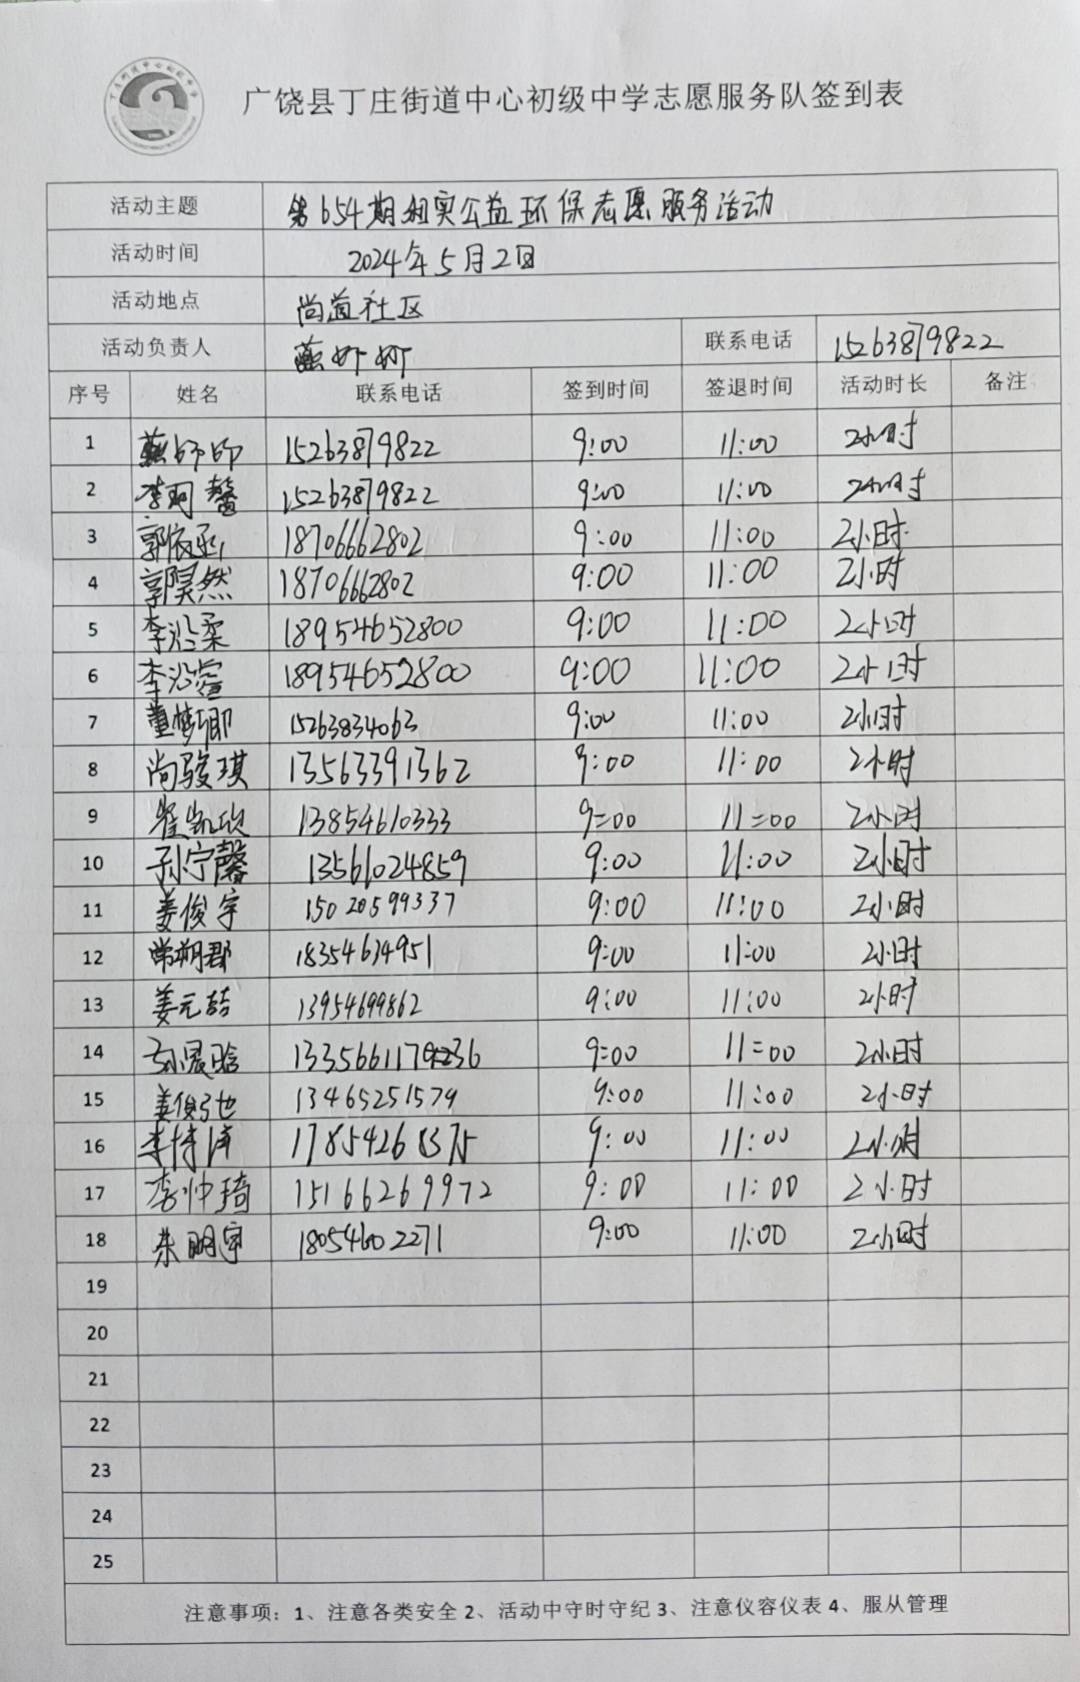 广饶县丁庄街道中心初级中学志愿服务队签到表
活动主题 第654期和实公益环保志愿服务活动
活动时间 2024年5月2日
活动地点 尚道社区
活动负责人 联系电话 15263879822
序号 姓名 联系电话 签到时间 签退时间 活动时长 备注
1 15263879822 9:00 11:00 2小时
2 15263879822 9:00 11:00 2小时
3 18706662802 9:00 11:00 2小时
4 郭昊然 18706662802 9:00 11:00 2小时
5 李沿柔 18954652800 9:00 11:00 2小时
6 18954652800 9:00 11:00 2小时
7 董梦卿 15263834063 9:00 11:00 2小时
8 尚骏琪 13563391362 9:00 11:00 2小时
9 崔凯欣 13854610333 9:00 11:00 2小时
10 孙宁馨 13561024859 9:00 11:00 2小时
11 姜俊宇 15020599337 9:00 11:00 2小时
12 常朔郡 18354634951 9:00 11:00 2小时
13 姜元喆 13954699862 9:00 11:00 2小时
14 孙晨晗 9:00 11:00 2小时
15 姜俊弛 13465251579 9:00 11:00 2小时
16 9:00 11:00 2小时
17 李帅琦 15166269972 9:00 11:00 2小时
18 朱明宇 18054602271 9:00 11:00 2小时
19
20
21
22
23
24
25
注意事项：1、注意各类安全 2、活动中守时守纪 3、注意仪容仪表 4、服从管理